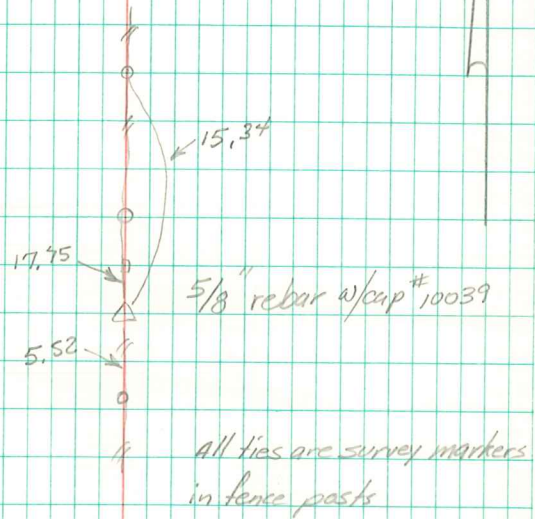 15.34
17.45
5/8" rebar w/cap #10039
5.52
All ties are survey markers
in fence posts